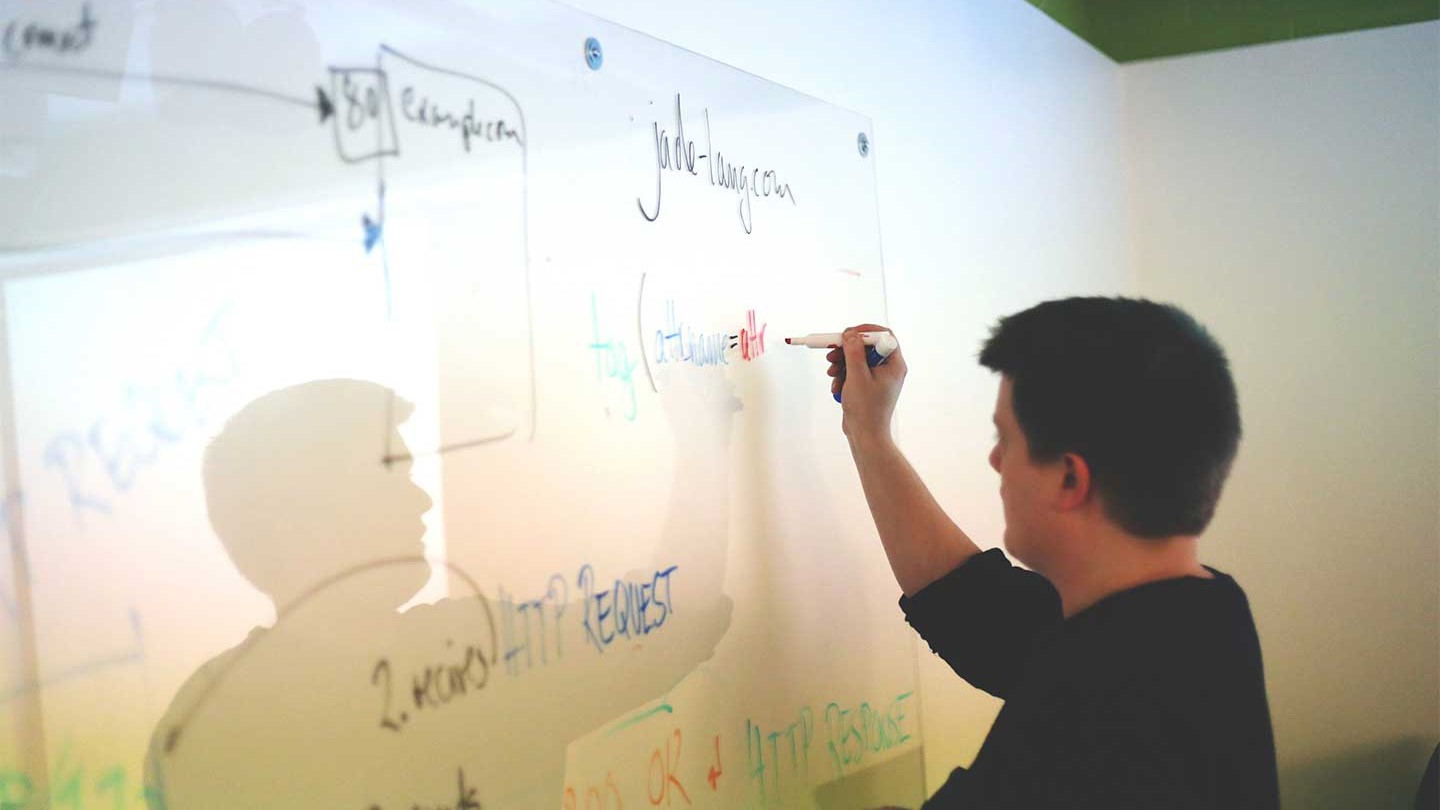 80 example.com
jade-lang.com
tag(attr.name=attr
REQUEST
2. recives HTTP REQUEST
OR HTTP RESPONSE